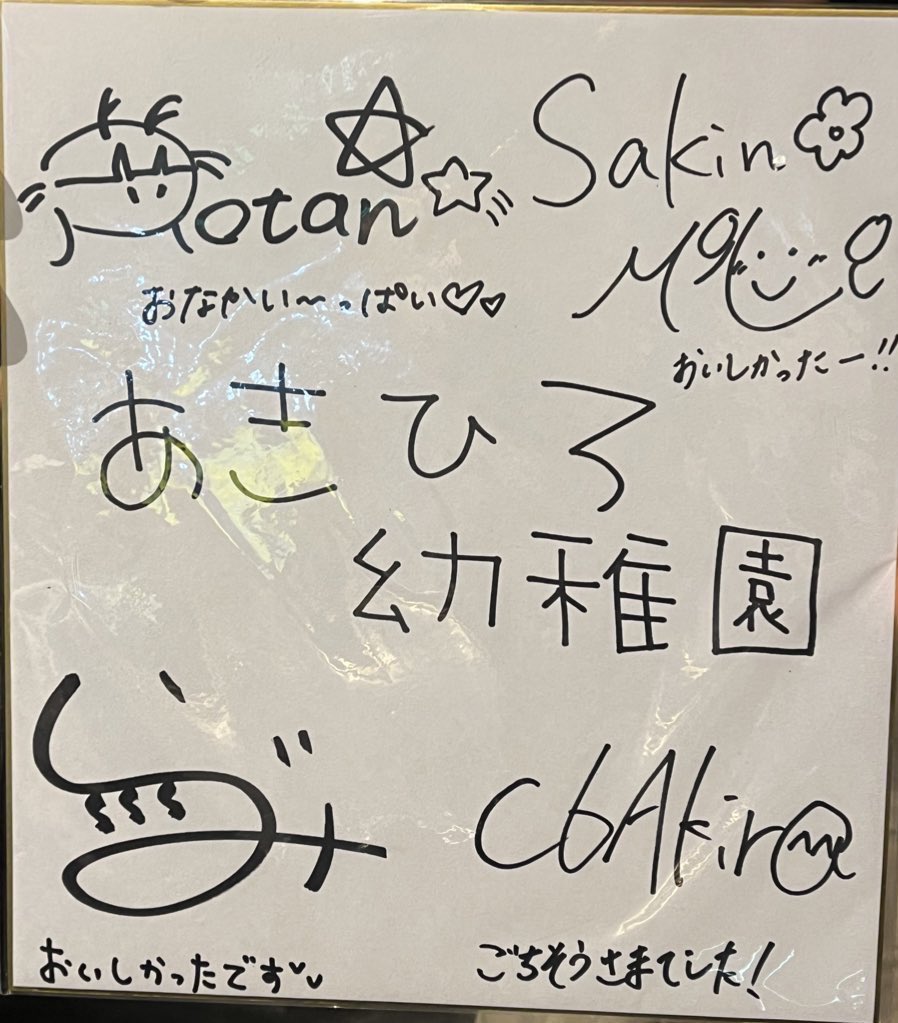 otan
Sakin
おなかい〜っぱい♡♡
おいしかったー!!
あきひろ
幼稚園
C6Akira
おいしかったです♡♡
ごちそうさまでした!